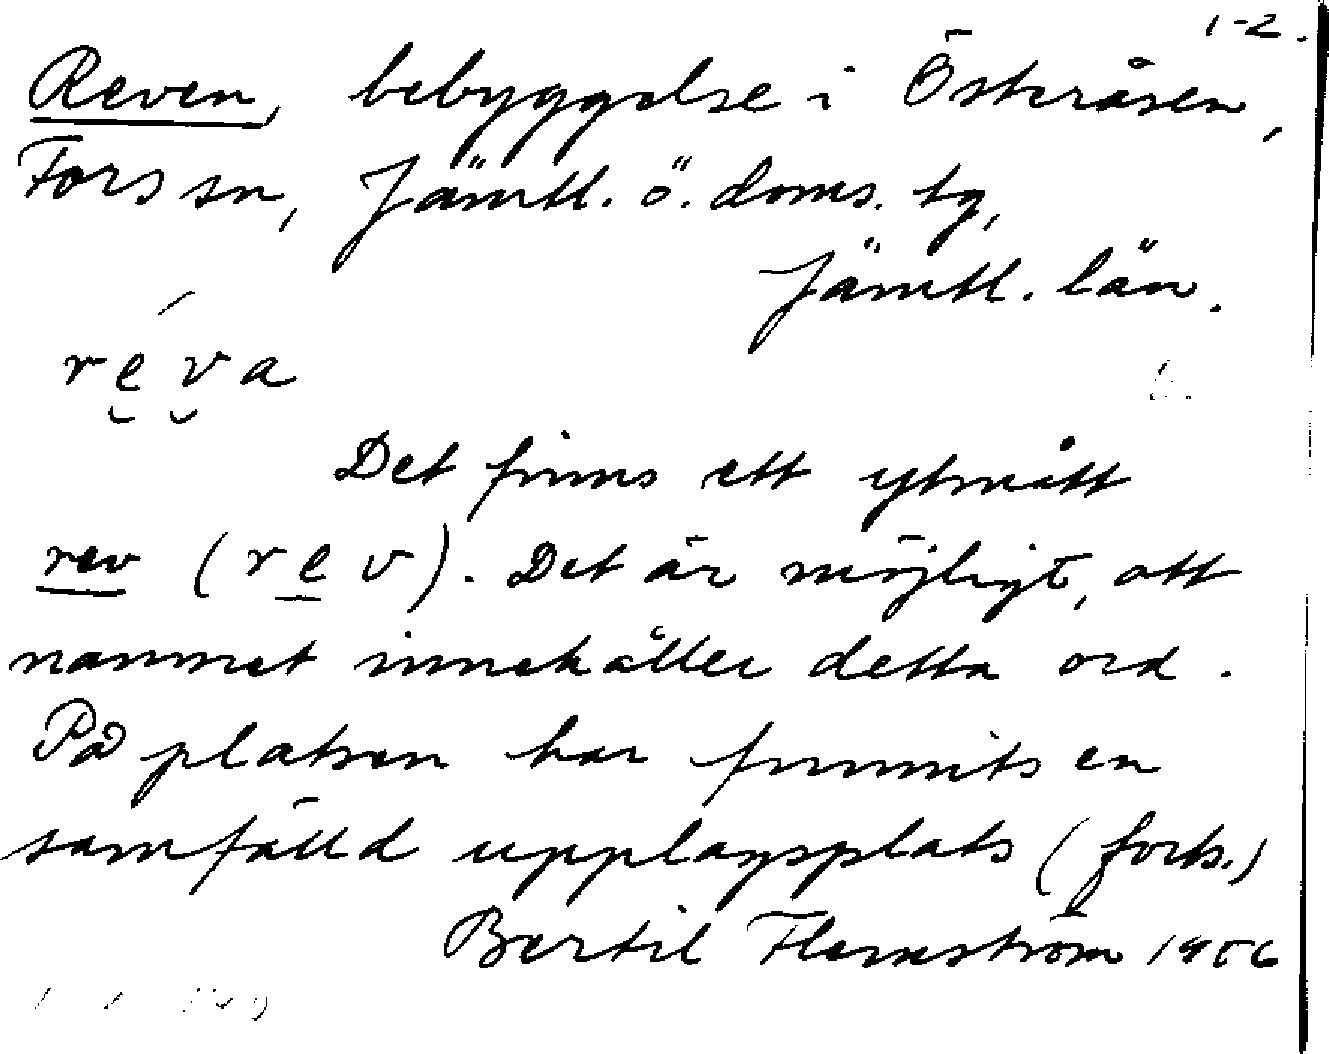 1-2.
Reven, bebyggelse i Österåsen,
Fors sn, Jämtl. ö. doms. tg,
Jämtl. län.
réva
Det finns ett ytmått
rev (rev). Det är möjligt, att
namnet innehåller detta ord.
På platsen har funnits en
samfälld upplagsplats (forts.)
Bertil Flemström 1956